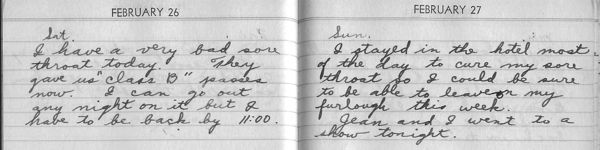 FEBRUARY 26
Sat.
I have a very bad sore
throat today. They
gave us "class B" passes
now. I can go out
any night on it but I
have to be back by 11:00.
FEBRUARY 27
Sun.
I stayed in the hotel most
of the day to cure my sore
throat so I could be sure
to be able to leave on my
furlough this week.
Jean and I went to a
show tonight.